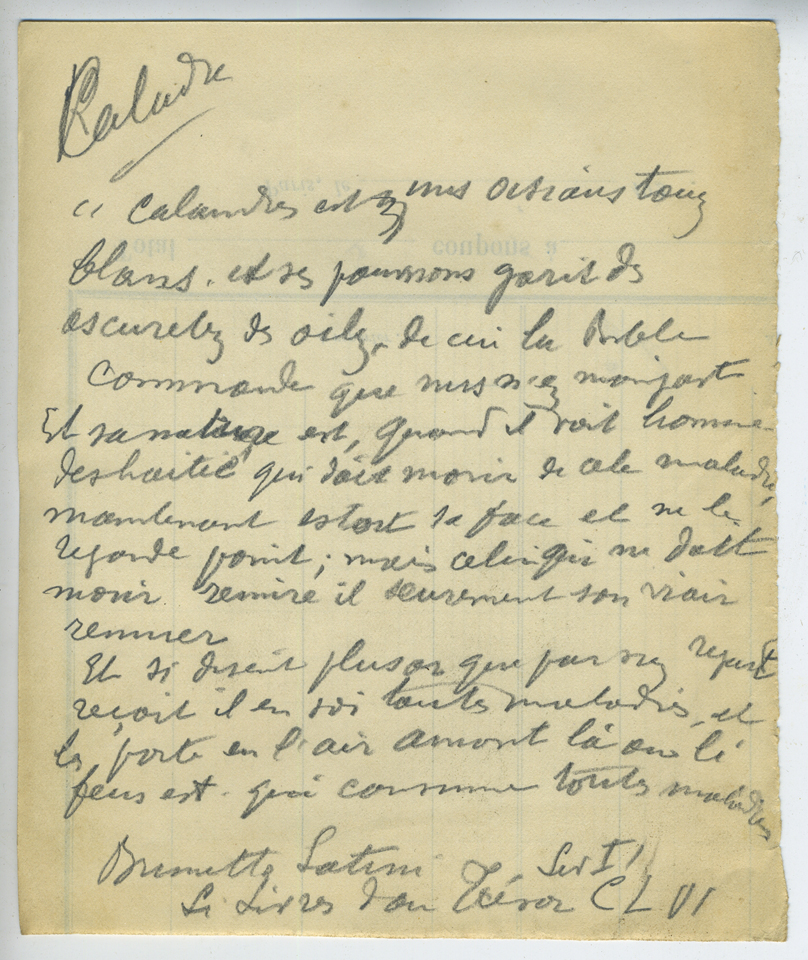 Caladre
" Calandres est uns oisiaus touz
blans. et ses poumons garit des
oscuretez des oilz, de cui la Bible
Commande que nus n'en manjast
Et sa nature est, quand il voit homme
deshaitié qui doit morir de cele maladie,
maintenant estort sa face et ne le
regarde point ; mais celui qui ne doit
morir remire il seurement son viaire
remuer
Et si disent plusor que par son regart
reçoit il en soi toutes maladies, et
les porte en l'air amont là ou li
feus est. qui consume toutes maladies
Brunetto Latini Liv I
Li Livres dou Trésor CLVI
Paris, le
Total coupons à